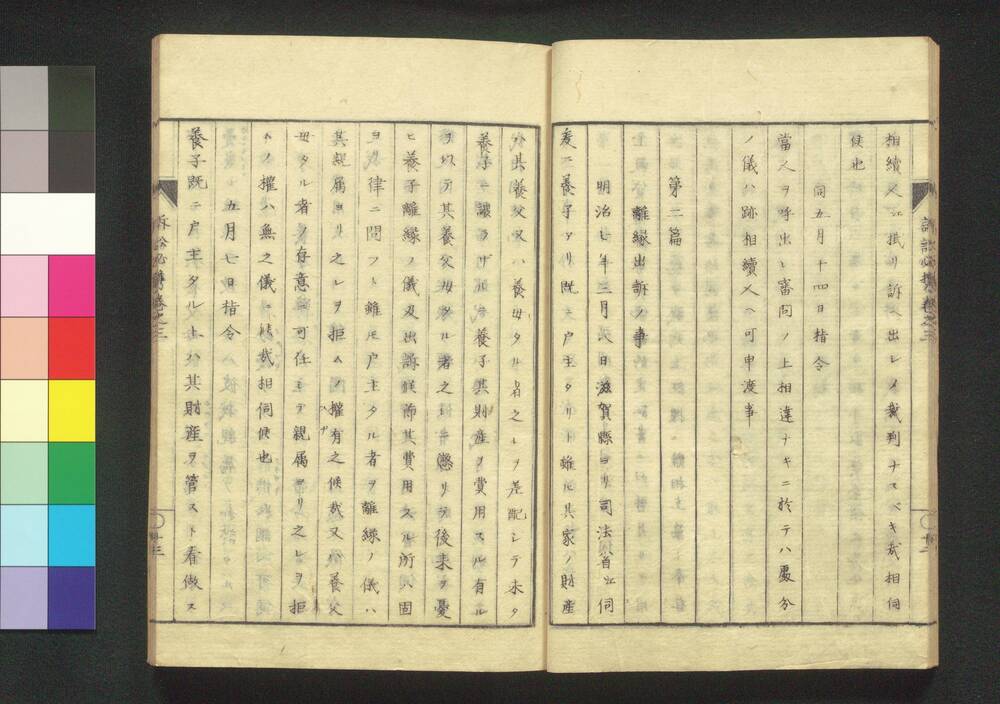 相續人ゟ抵リ訴ヘ出レハ裁判ナスベキ哉相伺
候也
同五月十四日指令
當人ヲ呼出シ審問ノ上相違ナキニ於テハ處分
ノ儀ハ跡相續人ヘ可申渡事
第二篇
離縁出訴ノ事
明治七年三月 日滋賀縣ヨリ司法省ヱ伺
爰ニ養子アリ既ニ戸主タリト雖ヒ其家ノ財産
ハ其養父又ハ養母タル者之レヲ差配シテ未タ
養子ニ讓ラザルニ養子其財産ヲ費用スル有ル
ヲ以テ其養父母タル者之レヲ懲リテ後来ヲ憂
ヒ養子離縁ノ儀及出訴候節其費用スル所ハ固
ヨリ律ニ問フト雖モ戸主タル者ヲ離縁ノ儀ハ
其親属ヨリ之レヲ拒ムノ權有之候哉又ハ養父
母タル者ノ存意ニ可任シテ親属ヨリ之レヲ拒
ムノ權ハ無之儀ニ候哉相伺候也
五月七日指令
養子既ニ戸主タル上ハ其財産ヲ管スト看做ス
訴訟必携巻之三